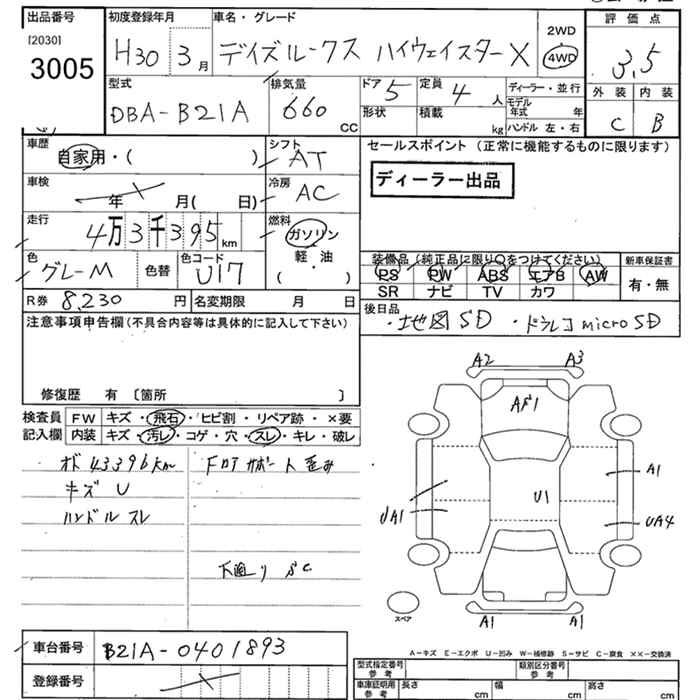 出品番号
[2030]
3005
初度登録年月
H30 3月
車名・グレード
デイズルークス ハイウェイスターX
2WD
4WD
評価点
3.5
型式
DBA-B21A
排気量
660 CC
ドア 5
形状
定員 4 人
積載 kg
ディーラー・並行
モデル年式 年
ハンドル 左・右
外装 内装
C B
車歴
自家用・( )
シフト
AT
車検
年 月( 日)
冷房
AC
走行
4万3千395km
燃料
ガソリン
軽・油
( )
色
グレーM
色替
色コード
U17
R券 8,230 円
名変期限 月 日
セールスポイント(正常に機能するものに限ります)
ディーラー出品
装備品(純正品に限り○をつけてください)
PS PW ABS エアB AW
SR ナビ TV カワ
新車保証書
有・無
後日品
・地図SD ・ドラレコmicroSD
注意事項申告欄(不具合内容等は具体的に記入して下さい)
修復歴 有 〔箇所 〕
検査員記入欄
FW キズ・飛石・ヒビ割・リペア跡・×要
内装 キズ・汚レ・コゲ・穴・スレ・キレ・破レ
オド43396km
キズU
ハンドルスレ
Fロアサポート歪み
下廻りSC
A2 A3
AF1
A1
U1
UA1
UA4
A1 A1
スペア
車台番号 B21A-0401893
登録番号
A-キズ E-エクボ U-凹み W-補修跡 S-サビ C-腐食 ××-交換済
型式指定番号 参考
類別区分番号 参考
車庫証明用 参考
長さ cm
幅 cm
高さ cm